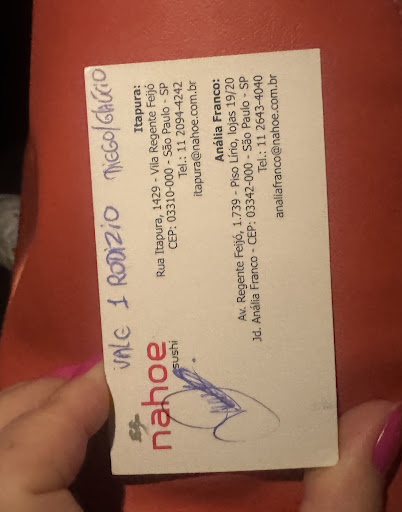 VALE 1 RODIZIO
nahoe
sushi
Itapura:
Rua Itapura, 1429 - Vila Regente Feijó
CEP: 03310-000 - São Paulo - SP
Tel.: 11 2094-4242
itapura@nahoe.com.br
Anália Franco:
Av. Regente Feijó, 1.739 - Piso Lírio, lojas 19/20
Jd. Anália Franco - CEP: 03342-000 - São Paulo - SP
Tel.: 11 2643-4040
analiafranco@nahoe.com.br